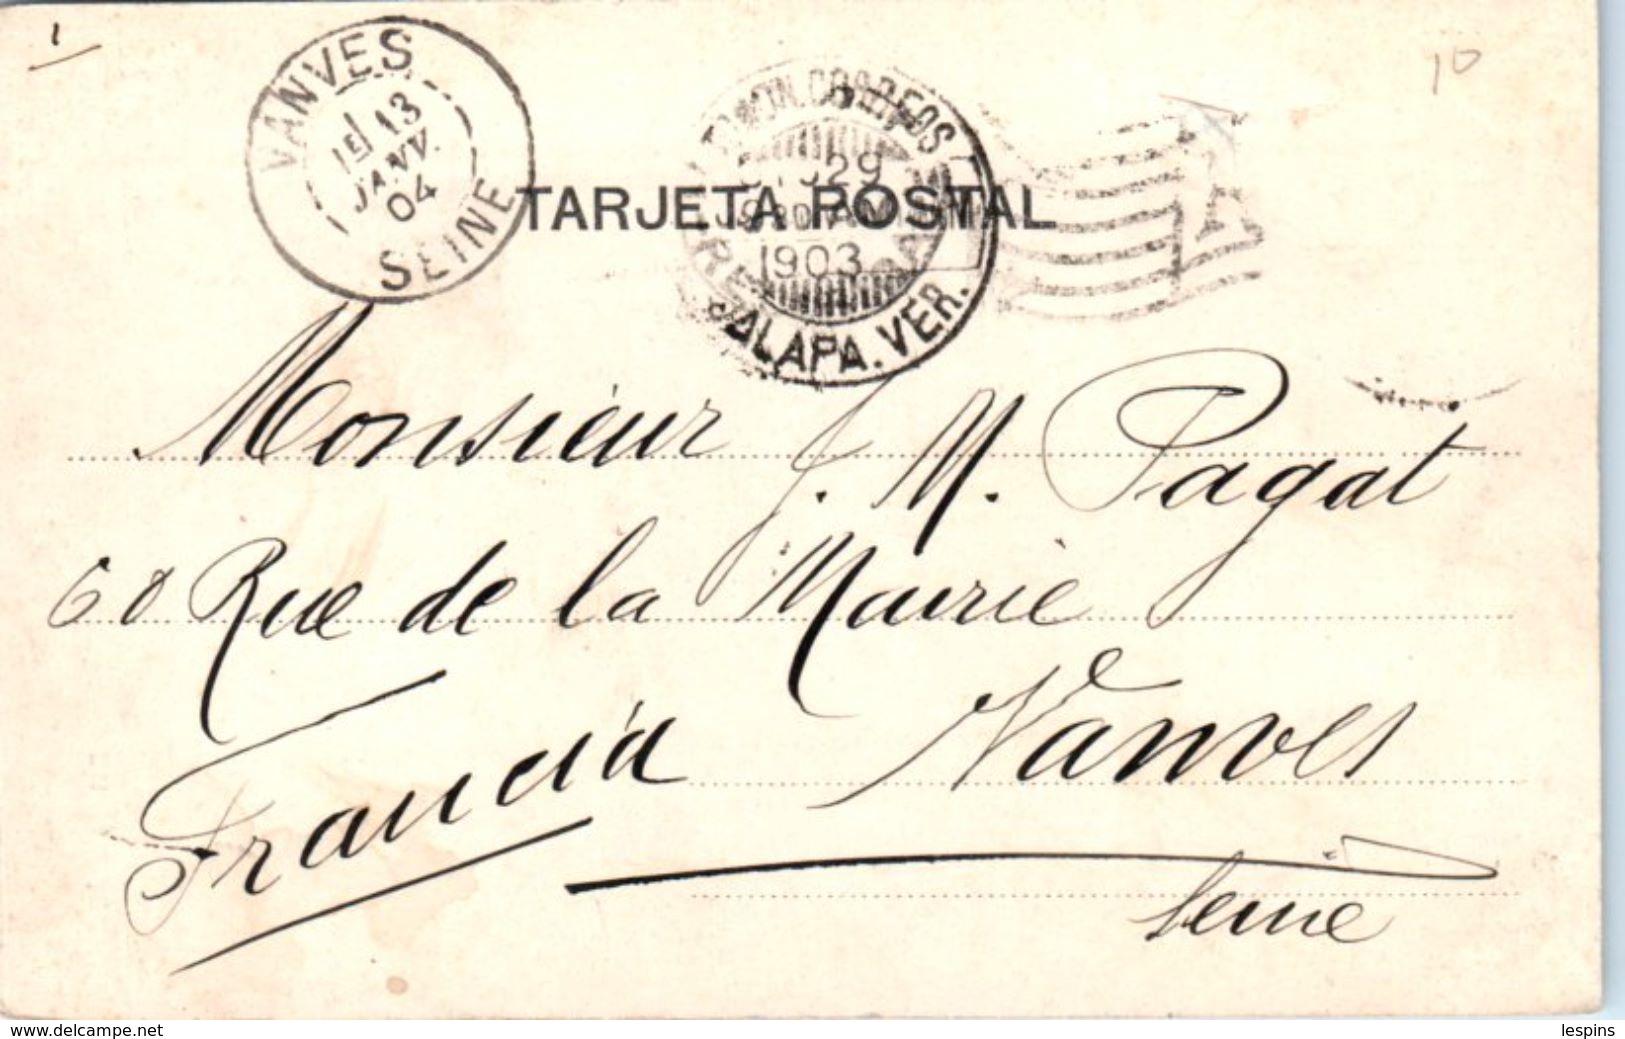 10
VANVES
13
JANV.
04
SEINE
CORREOS
29
1903
JALAPA. VER.
TARJETA POSTAL
Monsieur J. M. Pagat
60 Rue de la Mairie
Vanves
Francia
Seine
www.delcampe.net
lespins